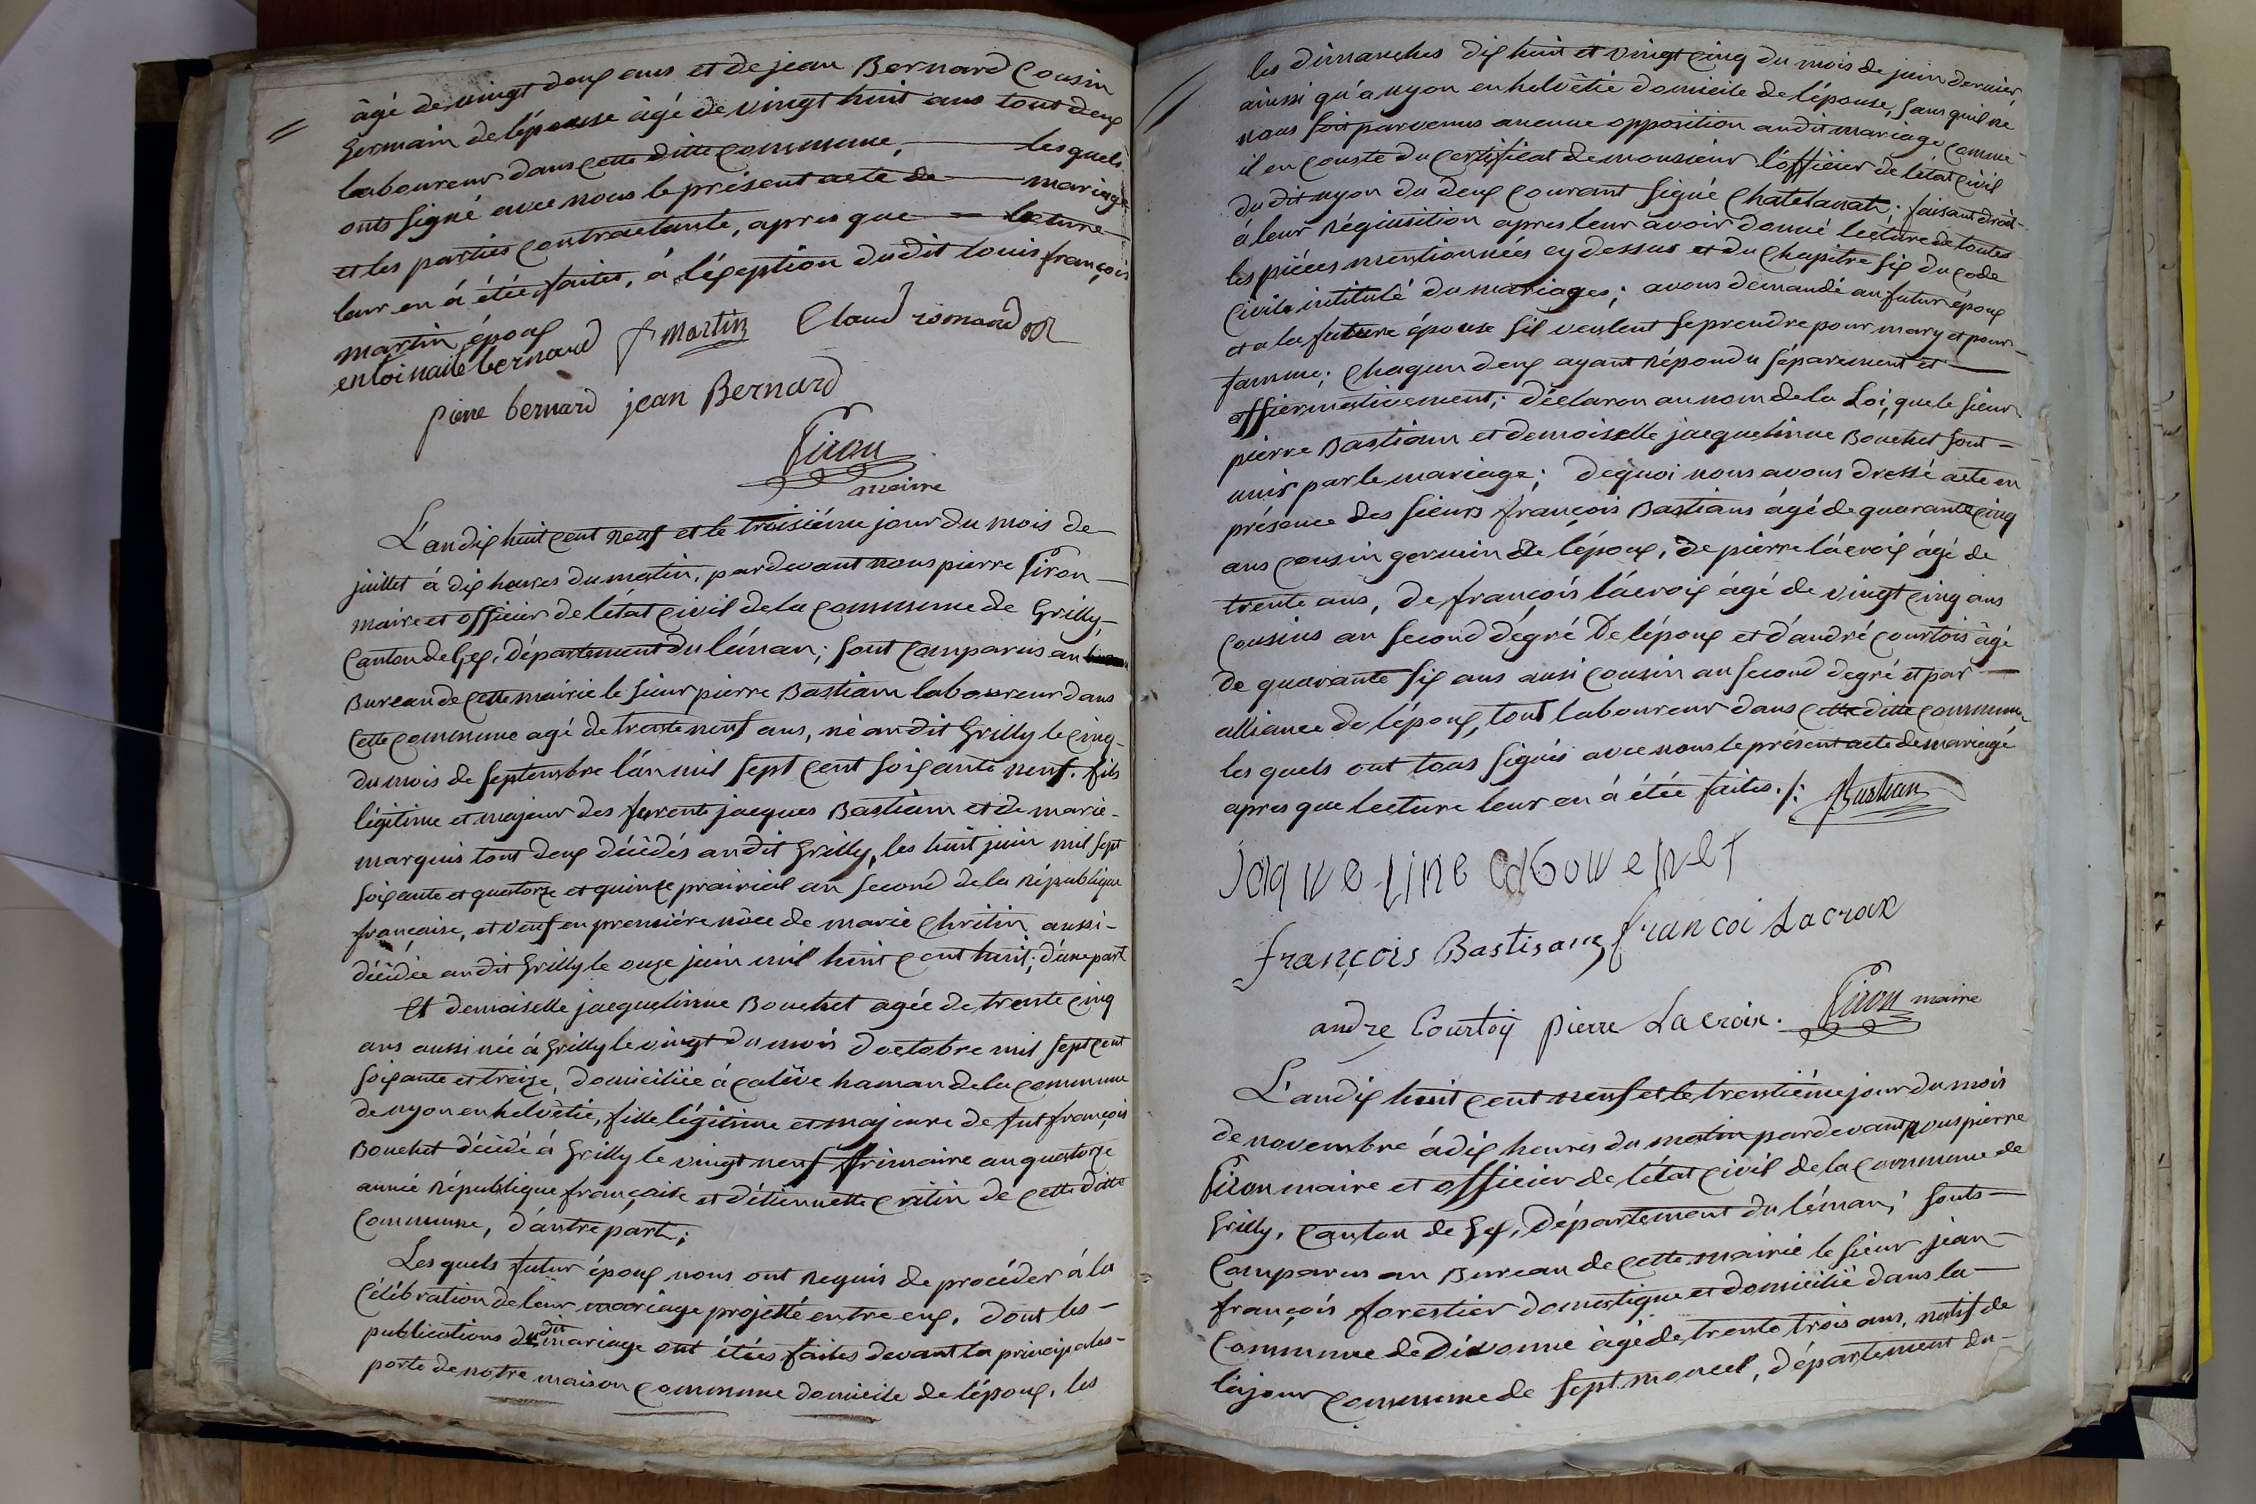 âgé de vingt deux ans et de jean Bernard Cousin
Germain de lépouse âgé de vingt huit ans tout deux
laboureur dans cette ditte commune, lesquels
onts signé avec nous le présent acte de mariage
et les parties contractante, apres que lecture
leur en á étée faites, á léxception dudit louis françois
martin époux
enloinaile bernard f martin Claud romand
pierre bernard jean Bernard
Giron
maire
L'an dix huit cent neuf et le troisiéme jour du mois de
juillet á dix heures du matin, pardevant nous pierre Giron
maire et officier de létat civil de la commune de Grilly,
Canton de Gex, département du léman; sont comparus au
Bureau de cette mairie le sieur pierre Bastian laboureur dans
cette commune agé de trente neuf ans, né audit Grilly le cinq
du mois de septembre lán mil sept cent soixante neuf. fils
légitime et majeur des furents jacques Bastian et de marie
marquis tout deux décédés audit Grilly, les huit juin mil sept
soixante et quatorze et quinze prairial an second de la République
française, et veuf en premiére nôce de marie Chritin aussi
décédée audit Grilly le onze juin mil huit cent huit; d'une part
Et demoiselle jacquelinne Bouchet agée de trente cinq
ans aussi née á Grilly le vingt du mois doctobre mil sept cent
soixante et treize, domiciliée á calêve haman de la commune
de nyon en helvètie, fille légitime et majeure de fut françois
Bouchet décédé á Grilly le vingt neuf frimaire an quatorze
année République française et détiennette critin de cette ditte
commune, d'autre part;
Lesquels futur époux nous ont requis de procéder á la
célébration de leur mariage projetté entre eux, dont les
publications dudit mariage ont étées faites devant la principales
porte de notre maison commune domicile de lépoux, les
les dimanches dix huit et vingt cinq du mois de juin dernier,
ainssi qu'á nyon en helvêtie domicile de lépouse, sans quil ne
nous soit parvenus aucune opposition audit mariage comme
il en couste du certificat de monsieur l'officier de létat civil
du dit nyon du deux courant signé Chatelanat; faisant droit
á leur réquisition apres leur avoir donné lecture de toutes
les piéces mentionnées cy dessus et du chapitre six du code
civile intitulé du mariages; avons demandé au futur époux
et a la future épouse s'il veulent se prendre pour mary et pour
famme; chaqun deux ayant répondu séparement et
affiermativement; déclaron au nom de la Loi, que le sieur
pierre Bastian et demoiselle jacquelinne Bouchet sont
unis par le mariage; dequoi nous avons dressé acte en
présence des sieurs françois Bastians âgé de quarante cinq
ans cousin germin de lépoux, de pierre lácroix âgé de
trente ans, de françois lácroix âgé de vingt cinq ans
cousins au second dégré de lépoux et d'andré courtois âgé
de quarante six ans ausi cousin au second degré et par
alliance de lépoux, tout laboureur dans cette ditte commune,
les quels ont tous signés avec nous le présent acte de mariage
apres que lecture leur en á étée faites./: Bastian
jaqueline Bouchet
françois Bastisan françoi Lacroix
andre Courtoy pierre Lacroix. Giron maire
L'an dix huit cent neuf et le trentiéme jour du mois
de novembre á dix heures du matin pardevant nous pierre
Giron maire et officier de létat civil de la commune de
Grilly, canton de Gex, département du léman; sonts
comparus au Bureau de cette mairie le sieur jean
françois forestier domestique et domicilié dans la
commune de Divonne âgé de trente trois ans, natif de
lájoux commune de sept moncel, département du